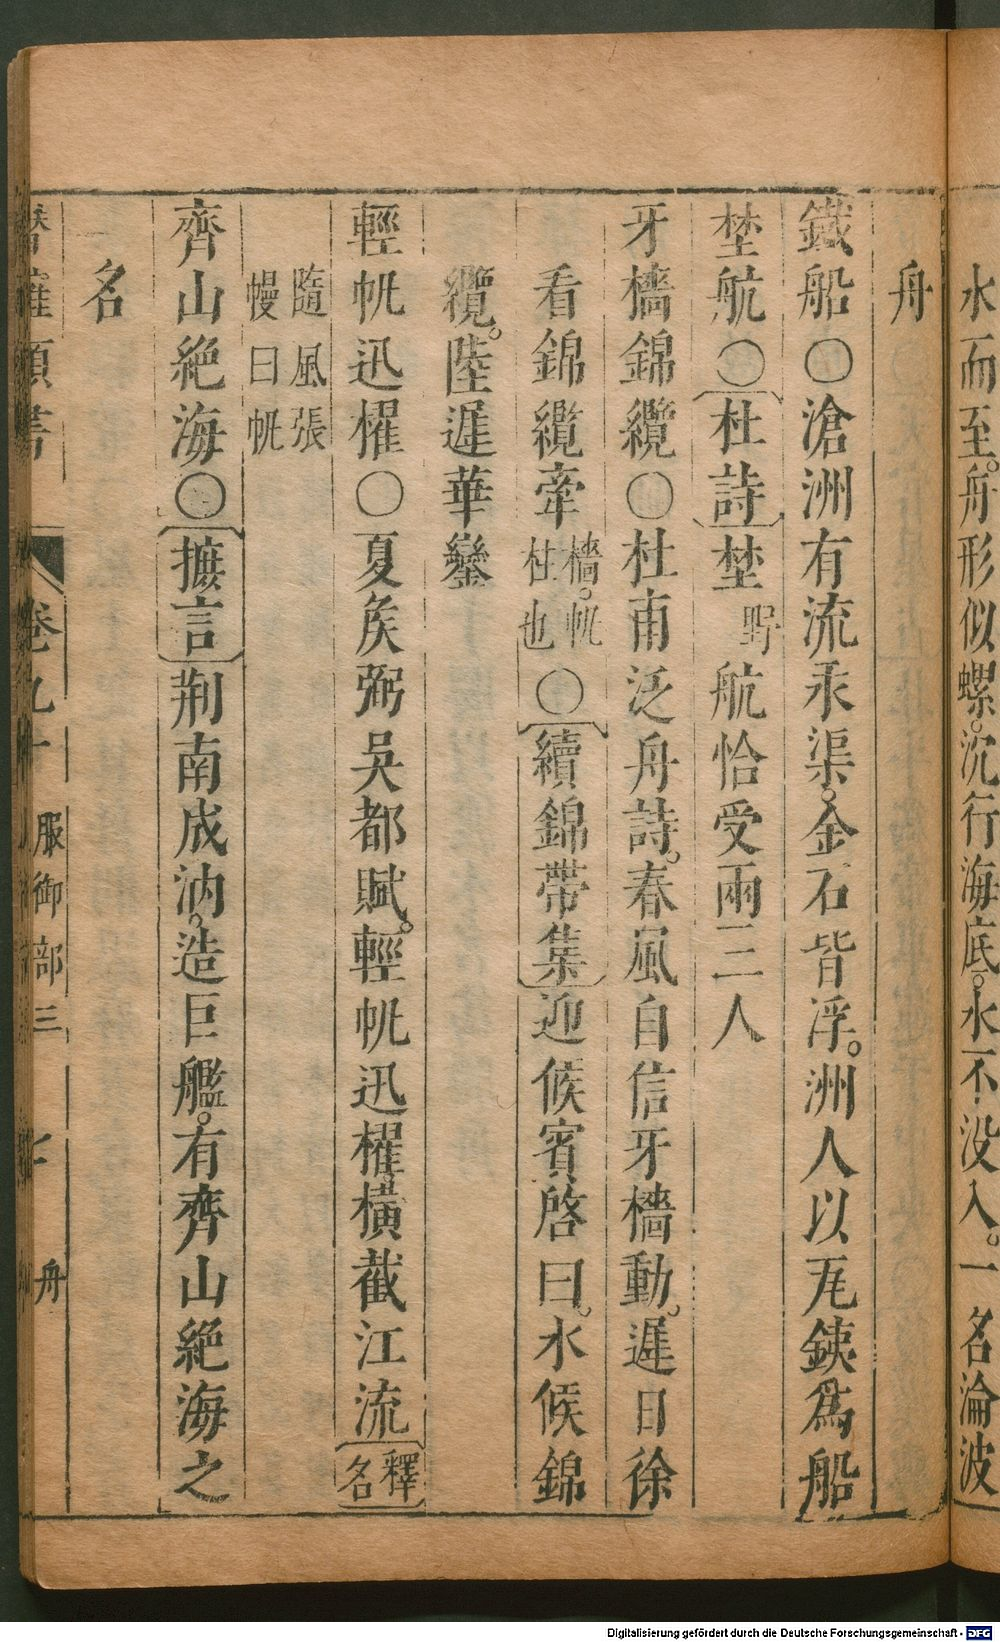 水而至。舟形似螺。沉行海底。水不没入。一名淪波
舟
鐵船〇滄洲有流汞渠。金石皆浮。洲人以瓦鐵爲船
埜航〇杜詩埜野航恰受兩三人
牙檣錦纜〇杜甫泛舟詩。春風自信牙檣動。遲日徐
看錦纜牽檣。帆柱也〇續錦帶集迎候賓啓曰。水候錦
纜。陸遲華鑾
輕帆迅櫂〇夏矦弼吳都賦。輕帆迅櫂橫截江流釋名
隨風張幔曰帆
齊山絕海〇摭言荆南成汭。造巨艦。有齊山絕海之
名
卷九十 服御部三 舟
Digitalisierung gefördert durch die Deutsche Forschungsgemeinschaft - DFG